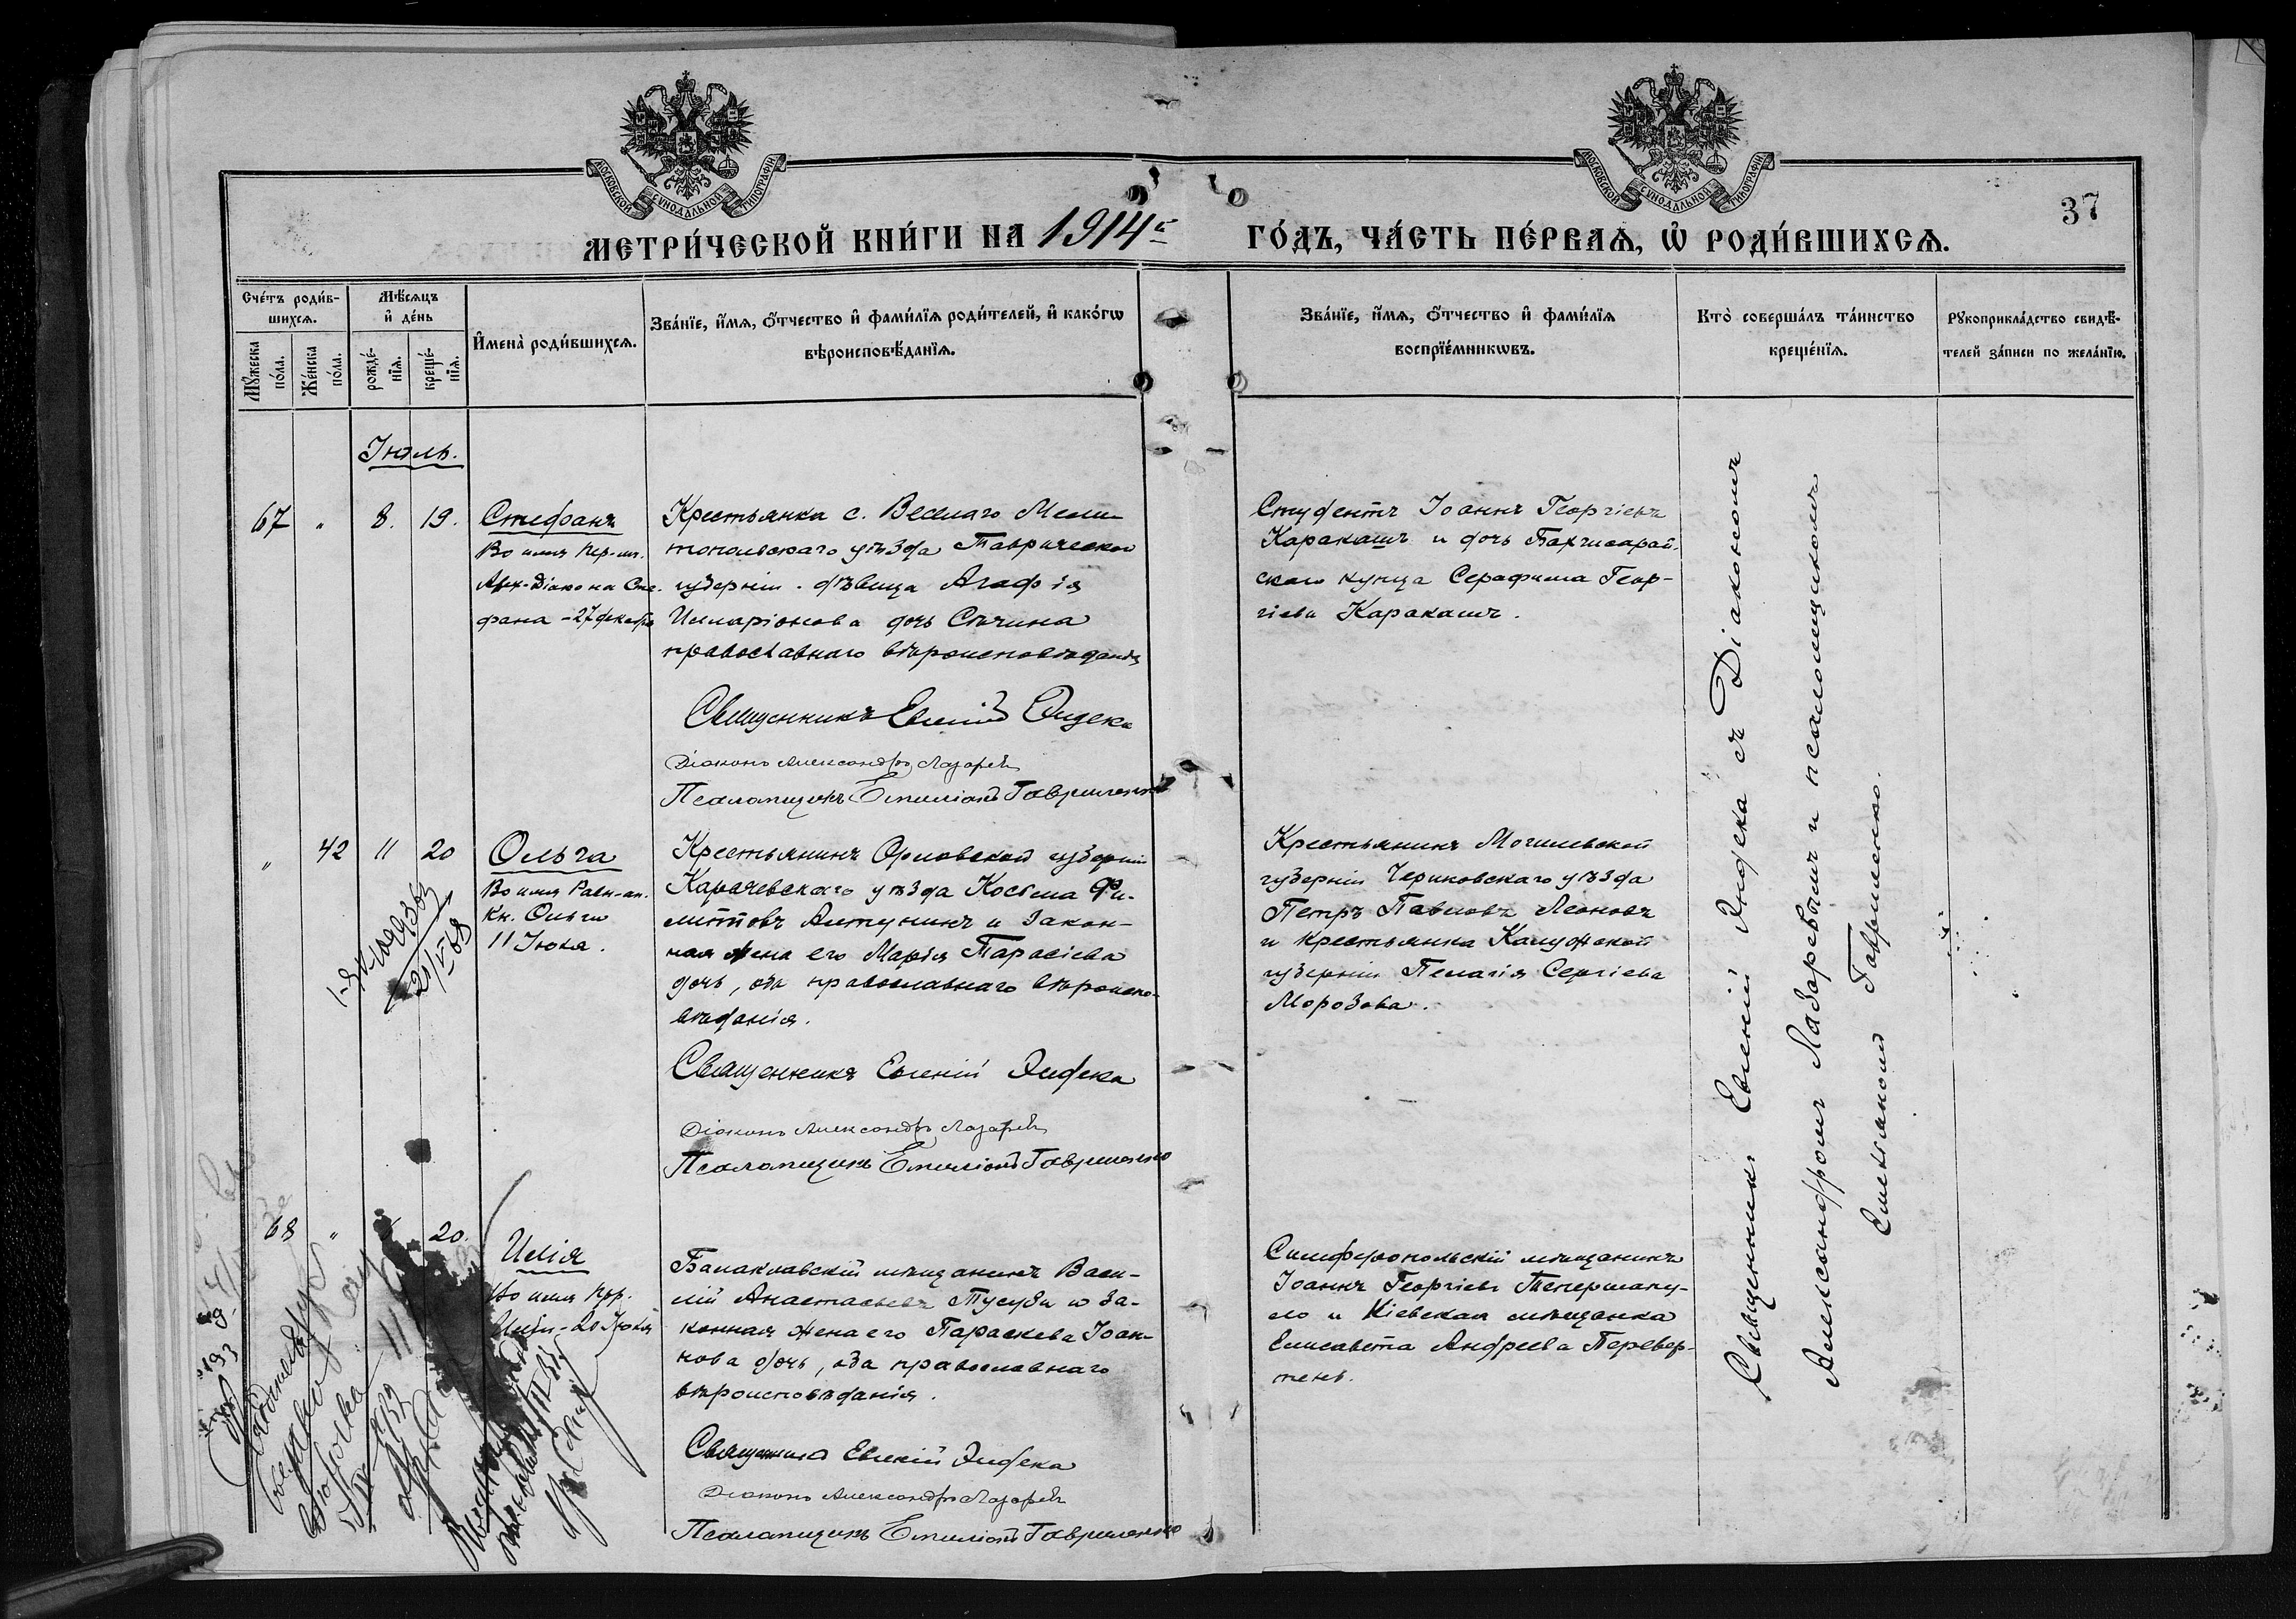 МОСКОВСКОЙ СѴНОДАЛЬНОЙ ТИПОГРАФІИ
МОСКОВСКОЙ СѴНОДАЛЬНОЙ ТИПОГРАФІИ
37
МЕТРИ́ЧЕСКОЙ КНИ́ГИ НА 1914 г.
ГО́ДЪ, ЧА́СТЬ ПЕ́РВАѦ, Ѡ҆ РОДИ́ВШИХСѦ.
Сче́тъ роди́в-
шихсѧ.
Мѣ́сѧцъ
и҆ де́нь
Мꙋ́жеска
по́ла.
Же́нска
по́ла.
рожде́-
нїѧ.
креще́-
нїѧ.
И҆мена̀ роди́вшихсѧ.
Зва́нїе, и҆́мѧ, ѻ҆́тчество и҆ фами́лїѧ роди́телей, и҆ како́гѡ
вѣроисповѣ́данїѧ.
Зва́нїе, и҆́мѧ, ѻ҆́тчество и҆ фами́лїѧ
воспрїе́мникѡвъ.
Кто̀ соверша́лъ та́инство
креще́нїѧ.
Рꙋкоприкла́дство свидѣ́-
телей за́писи по жела́нїю.
Іюль.
67 " 8. 19.
Стефанъ
Во имя пер-мч.
Арх-Діакона Сте-
фана - 27 декабря
Крестьянка с. Веселаго Мели-
топольскаго уѣзда Таврической
губерніи. дѣвица Агафія
Илларіонова дочь Сѣчина
православнаго вѣроисповѣданія
Священникъ Евгеній Эндека
Діаконъ Александръ Лазаревъ
Псаломщикъ Емиліанъ Гавриленко
Студентъ Іоаннъ Георгіевъ
Каракашъ и дочь Бахчисарай-
скаго купца Серафима Геор-
гіева Каракашъ.
" 42 11 20
Ольга
Во имя Равн-ап.
Кн. Ольги
11 Іюля.
Крестьянинъ Орловской губерніи
Карачевскаго уѣзда Косьма Фи-
липповъ Алтунинъ и закон-
ная жена его Марія Тарасіева
дочь, оба православнаго вѣроиспо-
вѣданія.
Священникъ Евгеній Эндека
Діаконъ Александръ Лазаревъ
Псаломщикъ Емиліанъ Гавриленко
Крестьянинъ Могилевской
губерніи Чериковскаго уѣзда
Петръ Павловъ Леоновъ
и крестьянка Калужской
губерніи Пелагія Сергіева
Морозова.
68 " 20.
Илія
Во имя прор.
Иліи - 20 Іюля
Балаклавскій мѣщанинъ Васи-
лій Анастасьевъ Тусузи и за-
конная жена его Параскева Іоан-
нова дочь, оба православнаго
вѣроисповѣданія.
Священникъ Евгеній Эндека
Діаконъ Александръ Лазаревъ
Псаломщикъ Емиліанъ Гавриленко
Симферопольскій мѣщанинъ
Іоаннъ Георгіевъ
и Кіевская мѣщанка
Елисавета Андреева Перевер-
тень.
Священникъ Евгеній Эндека съ Діакономъ
Александромъ Лазаревымъ и псаломщикомъ
Емиліаномъ Гавриленко.